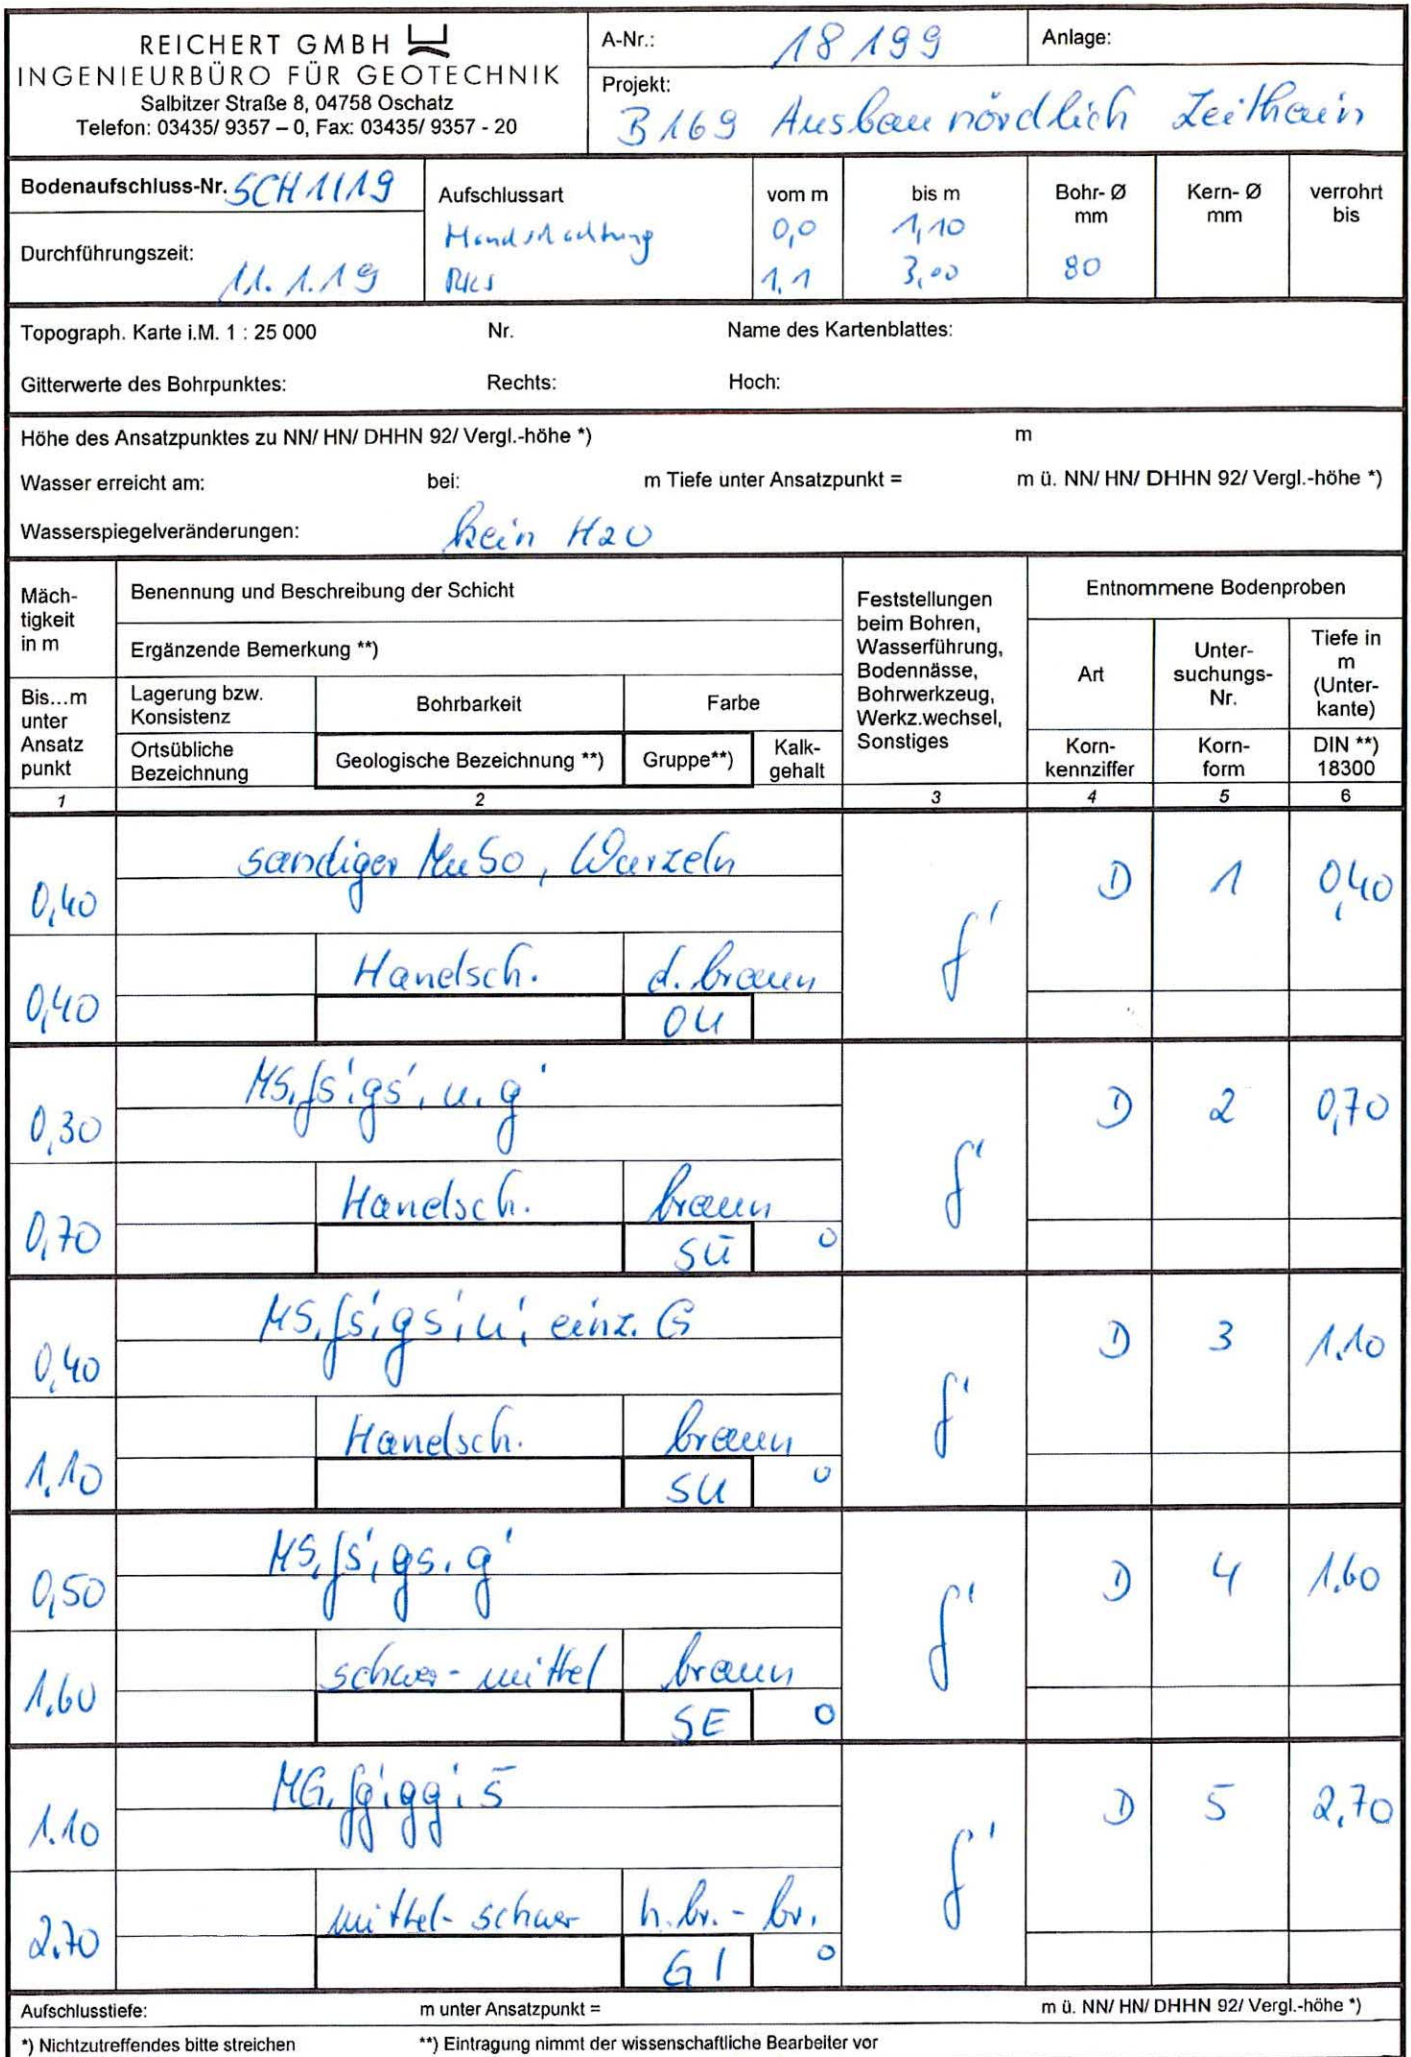 REICHERT GMBH
INGENIEURBÜRO FÜR GEOTECHNIK
Salbitzer Straße 8, 04758 Oschatz
Telefon: 03435/ 9357 – 0, Fax: 03435/ 9357 - 20
A-Nr.: 18 199 Anlage:
Projekt:
B 169 Ausbau nördlich Zeithain
Bodenaufschluss-Nr. SCH 1/19
Durchführungszeit:
11.1.19
Aufschlussart vom m bis m Bohr- Ø mm Kern- Ø mm verrohrt bis
Handschachtung 0,0 1,10
RKS 1,1 3,00 80
Topograph. Karte i.M. 1 : 25 000 Nr. Name des Kartenblattes:
Gitterwerte des Bohrpunktes: Rechts: Hoch:
Höhe des Ansatzpunktes zu NN/ HN/ DHHN 92/ Vergl.-höhe *) m
Wasser erreicht am: bei: m Tiefe unter Ansatzpunkt = m ü. NN/ HN/ DHHN 92/ Vergl.-höhe *)
Wasserspiegelveränderungen: kein H2O
Mäch-
tigkeit
in m
Bis...m
unter
Ansatz
punkt
Benennung und Beschreibung der Schicht
Ergänzende Bemerkung **)
Lagerung bzw.
Konsistenz
Bohrbarkeit
Farbe
Ortsübliche
Bezeichnung
Geologische Bezeichnung **)
Gruppe**)
Kalk-
gehalt
Feststellungen
beim Bohren,
Wasserführung,
Bodennässe,
Bohrwerkzeug,
Werkz.wechsel,
Sonstiges
Entnommene Bodenproben
Art
Unter-
suchungs-
Nr.
Tiefe in
m
(Unter-
kante)
Korn-
kennziffer
Korn-
form
DIN **)
18300
1 2 3 4 5 6
sandiger MuBo, Wurzeln
0,40 f' D 1 0,40
Handsch. d. braun
0,40 OU
MS, fs', gs', u, g'
0,30 f' D 2 0,70
Handsch. braun
0,70 SŪ 0
MS, fs', gs, u', einz. G
0,40 f' D 3 1.10
Handsch. braun
1.10 SU 0
MS, fs', gs, g'
0,50 f' D 4 1.60
schwer-mittel braun
1.60 SE 0
MG, fg', gg', s̄
1.10 f' D 5 2,70
mittel-schwer h.br.-br.
2.70 GI 0
Aufschlusstiefe: m unter Ansatzpunkt = m ü. NN/ HN/ DHHN 92/ Vergl.-höhe *)
*) Nichtzutreffendes bitte streichen **) Eintragung nimmt der wissenschaftliche Bearbeiter vor